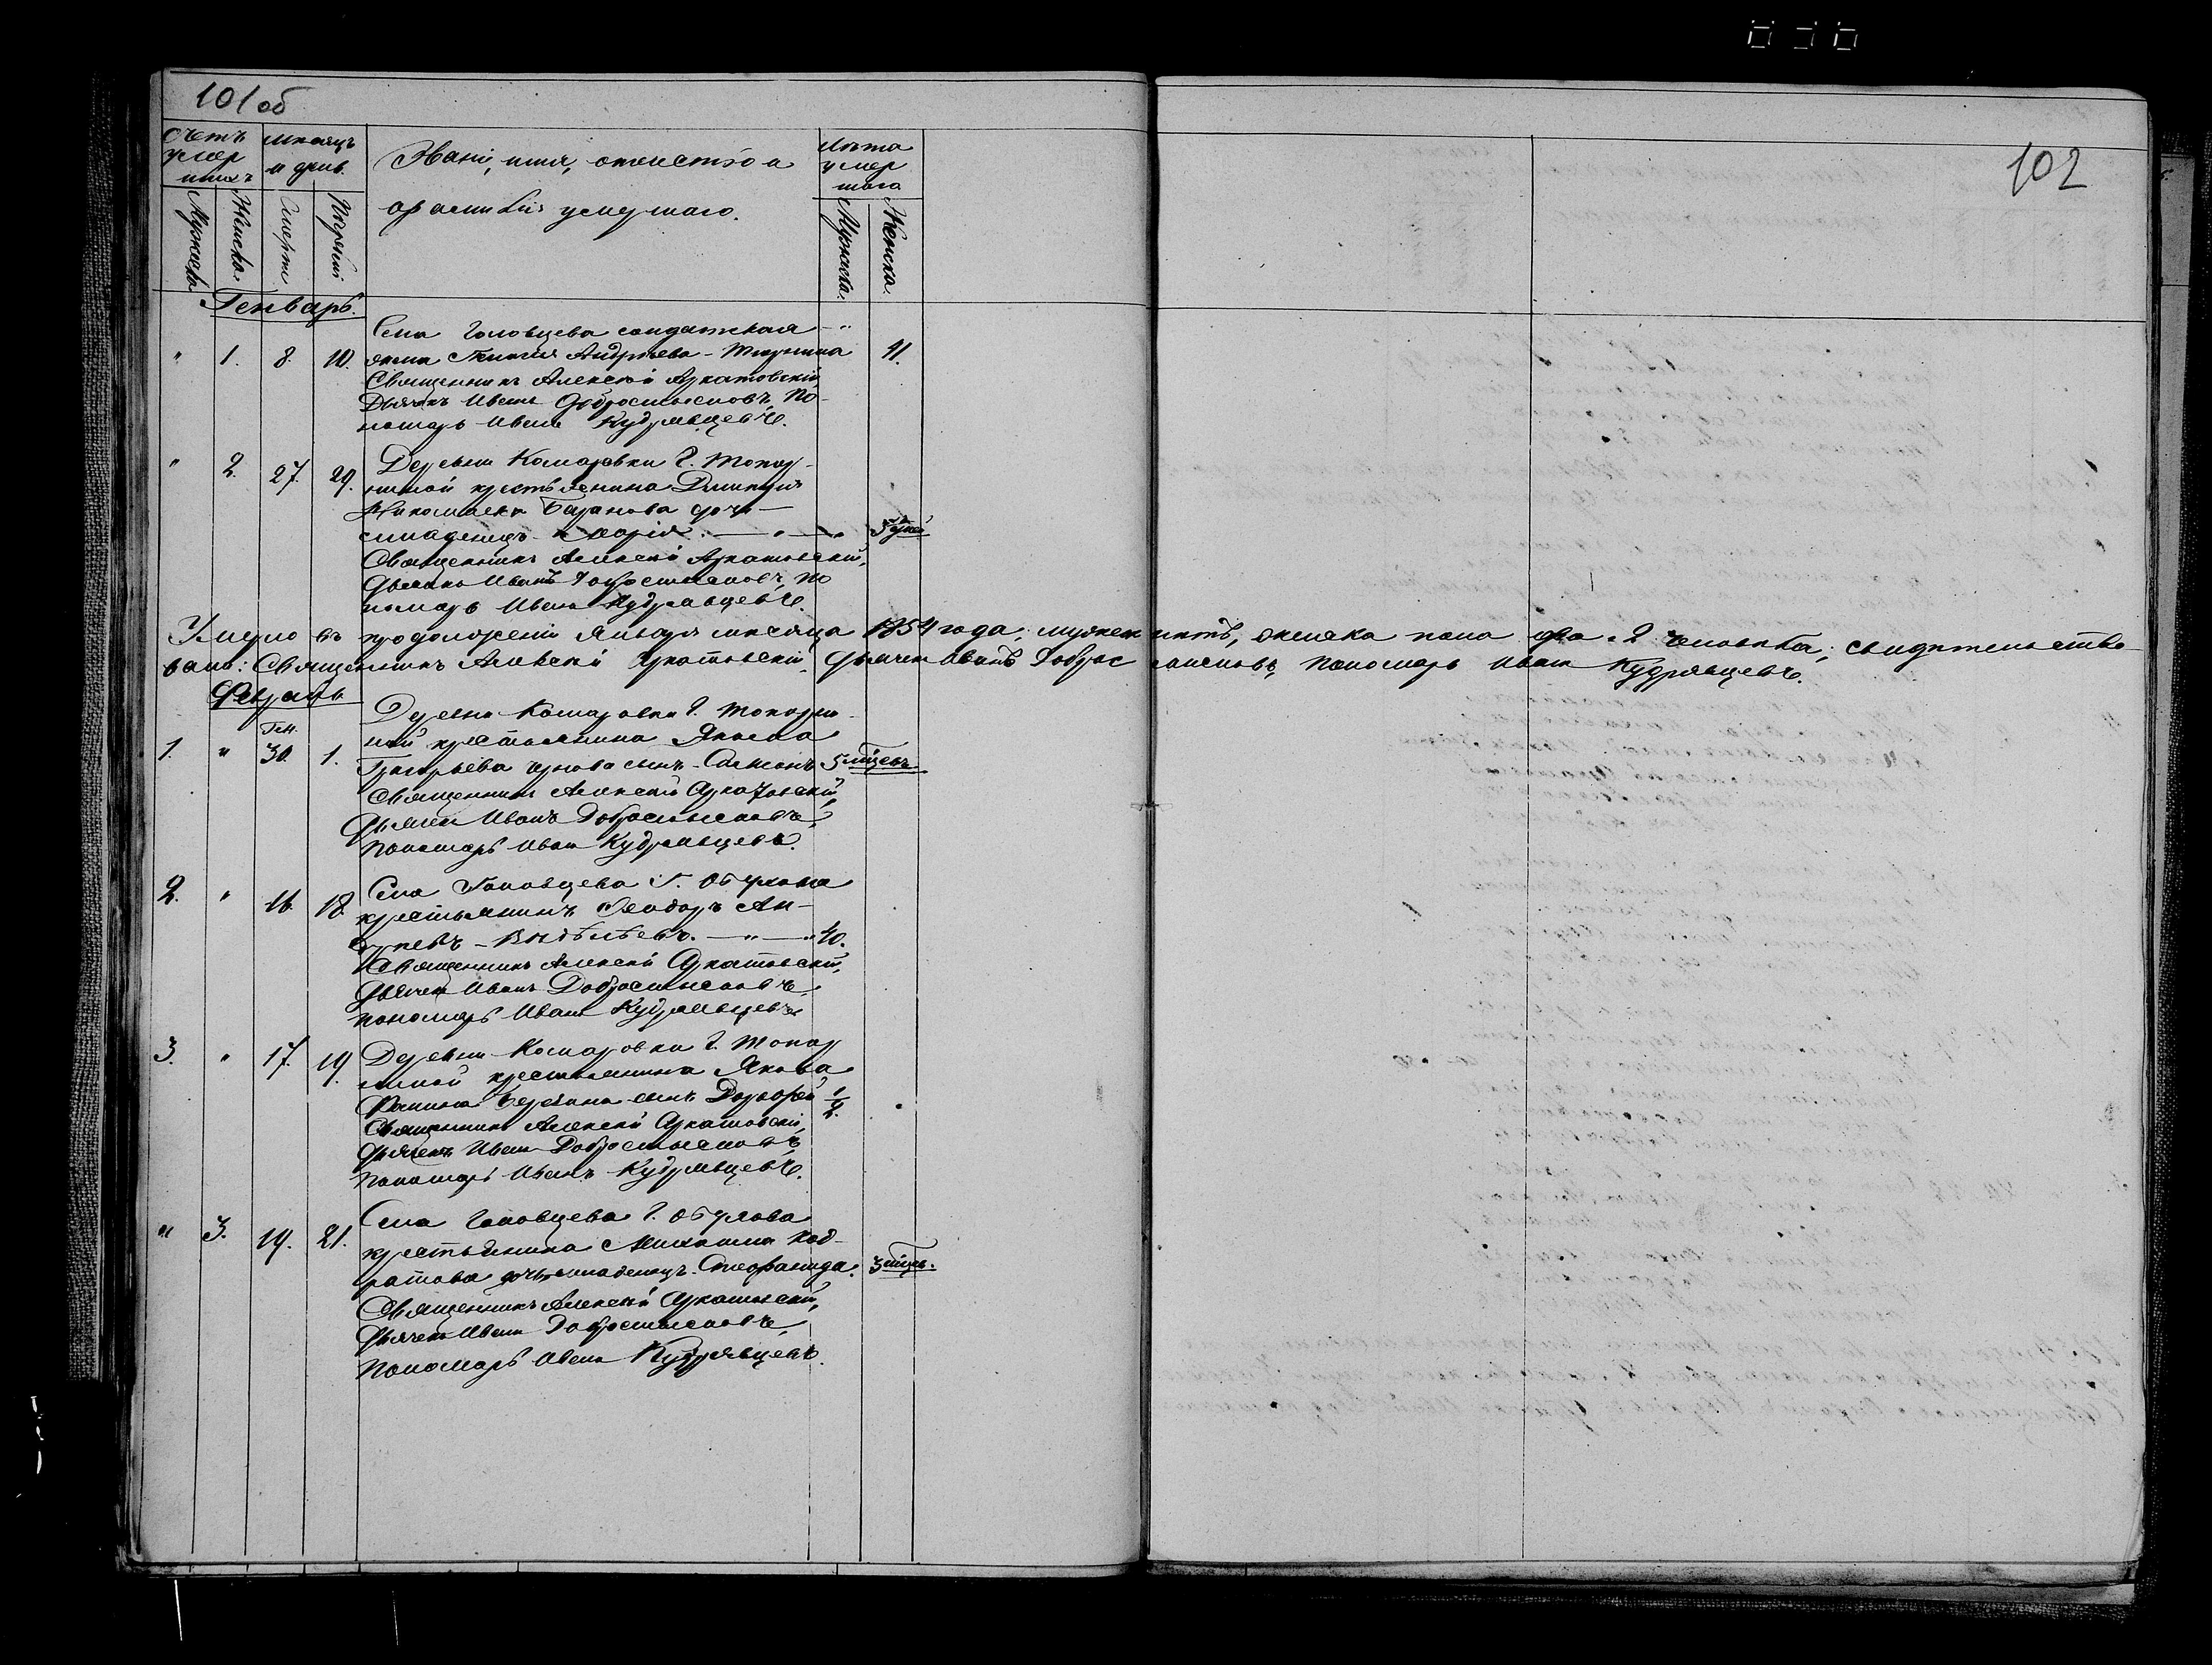 101 об
102
Счетъ умер шихъ
Мѣсяцъ и день.
Званіе, имя, отечество и
фамилія умершаго.
Лѣта умер шаго
Мужеска.
Женска.
Смерти
Погребенія
Мужеска.
Женска.
Генварь.
Села Головцева солдатская
" 1. 8. 10. жена Андреева 41.
Священникъ Алексѣй Аркатовскій,
Дьячекъ Иванъ Добросмысловъ, По-
номарь Иванъ Кудрявцевъ.
" 2. 27. 29. Деревни Комаровки Г. Топор-
ниной крестьянина Дмитрія
Николаева Баранова дочь
младенецъ Марія. 5 дней
Священникъ Алексѣй Аркатовскій,
Дьячекъ Иванъ Добросмысловъ, По
номарь Иванъ Кудрявцевъ.
Умерло въ продолженіи Января мѣсяца 1854 года, мужеск нѣтъ, женска пола два 2 человѣка; свидѣтельство-
вали: Священникъ Алексѣй Аркатовскій Дьячекъ Иванъ Добросмысловъ, Пономарь Иванъ Кудрявцевъ.
Февраль
Деревни Комаровки Г. Топорни-
ген.
1. " 30. 1. ной крестьянина Якова
Григорьева Чернова сынъ 5 мѣсцевъ
Священникъ Алексѣй Аркатовскій,
Дьячекъ Иванъ Добросмысловъ,
Пономарь Иванъ Кудрявцевъ.
2. " 16. 18. Села Головцева Г. Обухова
крестьянинъ Ѳеодоръ
40.
Священникъ Алексѣй Аркатовскій,
Дьячекъ Иванъ Добросмысловъ,
Пономарь Иванъ Кудрявцевъ
3. " 17. 19. Деревни Комаровки Г. Топор
ниной крестьянина Якова
сынъ 1/2.
Священникъ Алексѣй Аркатовскій,
Дьячекъ Иванъ Добросмысловъ
Пономарь Иванъ Кудрявцевъ.
" 3. 19. 21. Села Головцева Г. Обухова
крестьянина Михаила Код-
ратова дочь младенецъ Стефанида. 3 мѣсц.
Священникъ Алексѣй Аркатовскій,
Дьячекъ Иванъ Добросмысловъ,
Пономарь Иванъ Кудрявцевъ.